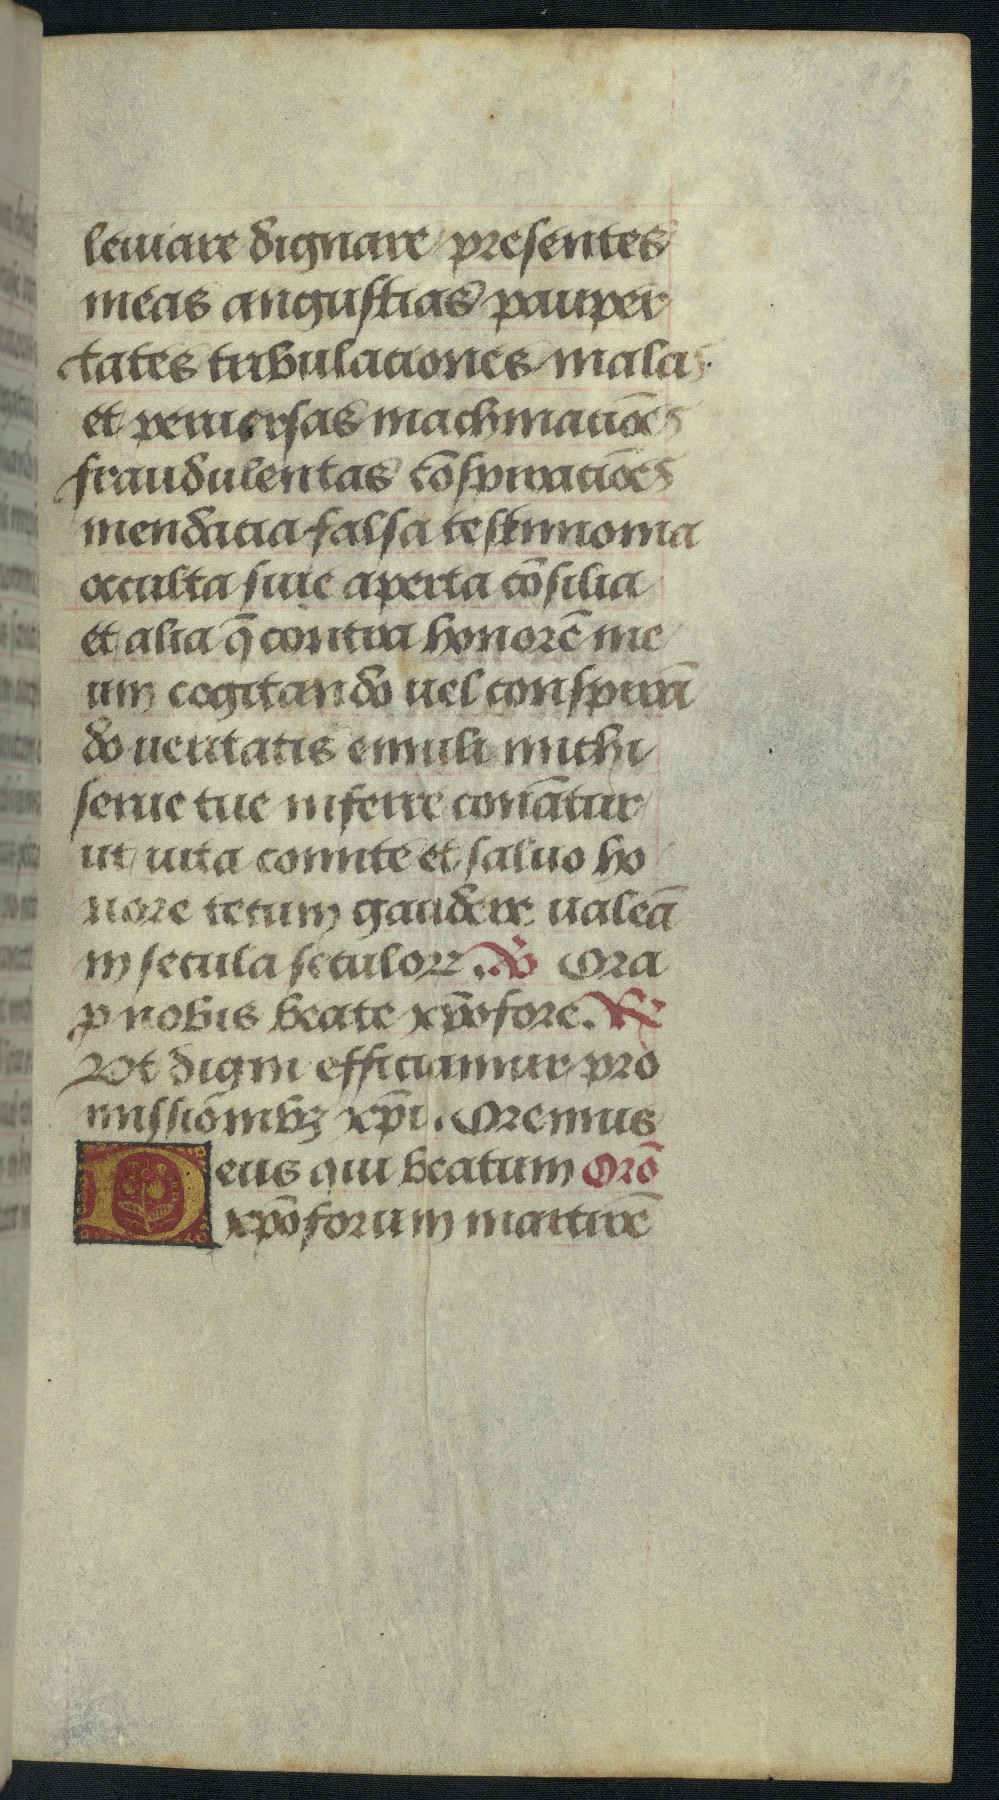 leuiare dignare presentes
meas angustias pauper
tates tribulationes malas
et peruersas machinatiões
fraudulentas cõspiratiões
mendatia falsa testimonia
occulta siue aperta cõsilia
et alia q̃ contra honorẽ me
um cogitando uel conspirã
do ueritatis emuli mithi
serue tue inferre conãtur
ut uita comite et saluo ho
nore tecum gaudere ualeã
in secula seculorꝝ. ℣ Ora
ꝓ nobis beate xp̃ofore. ℟
Vt digni efficiamur pro
missiõnibꝫ xp̃i. Oremus
Deus qui beatum Orõ
xp̃oforum martirẽ